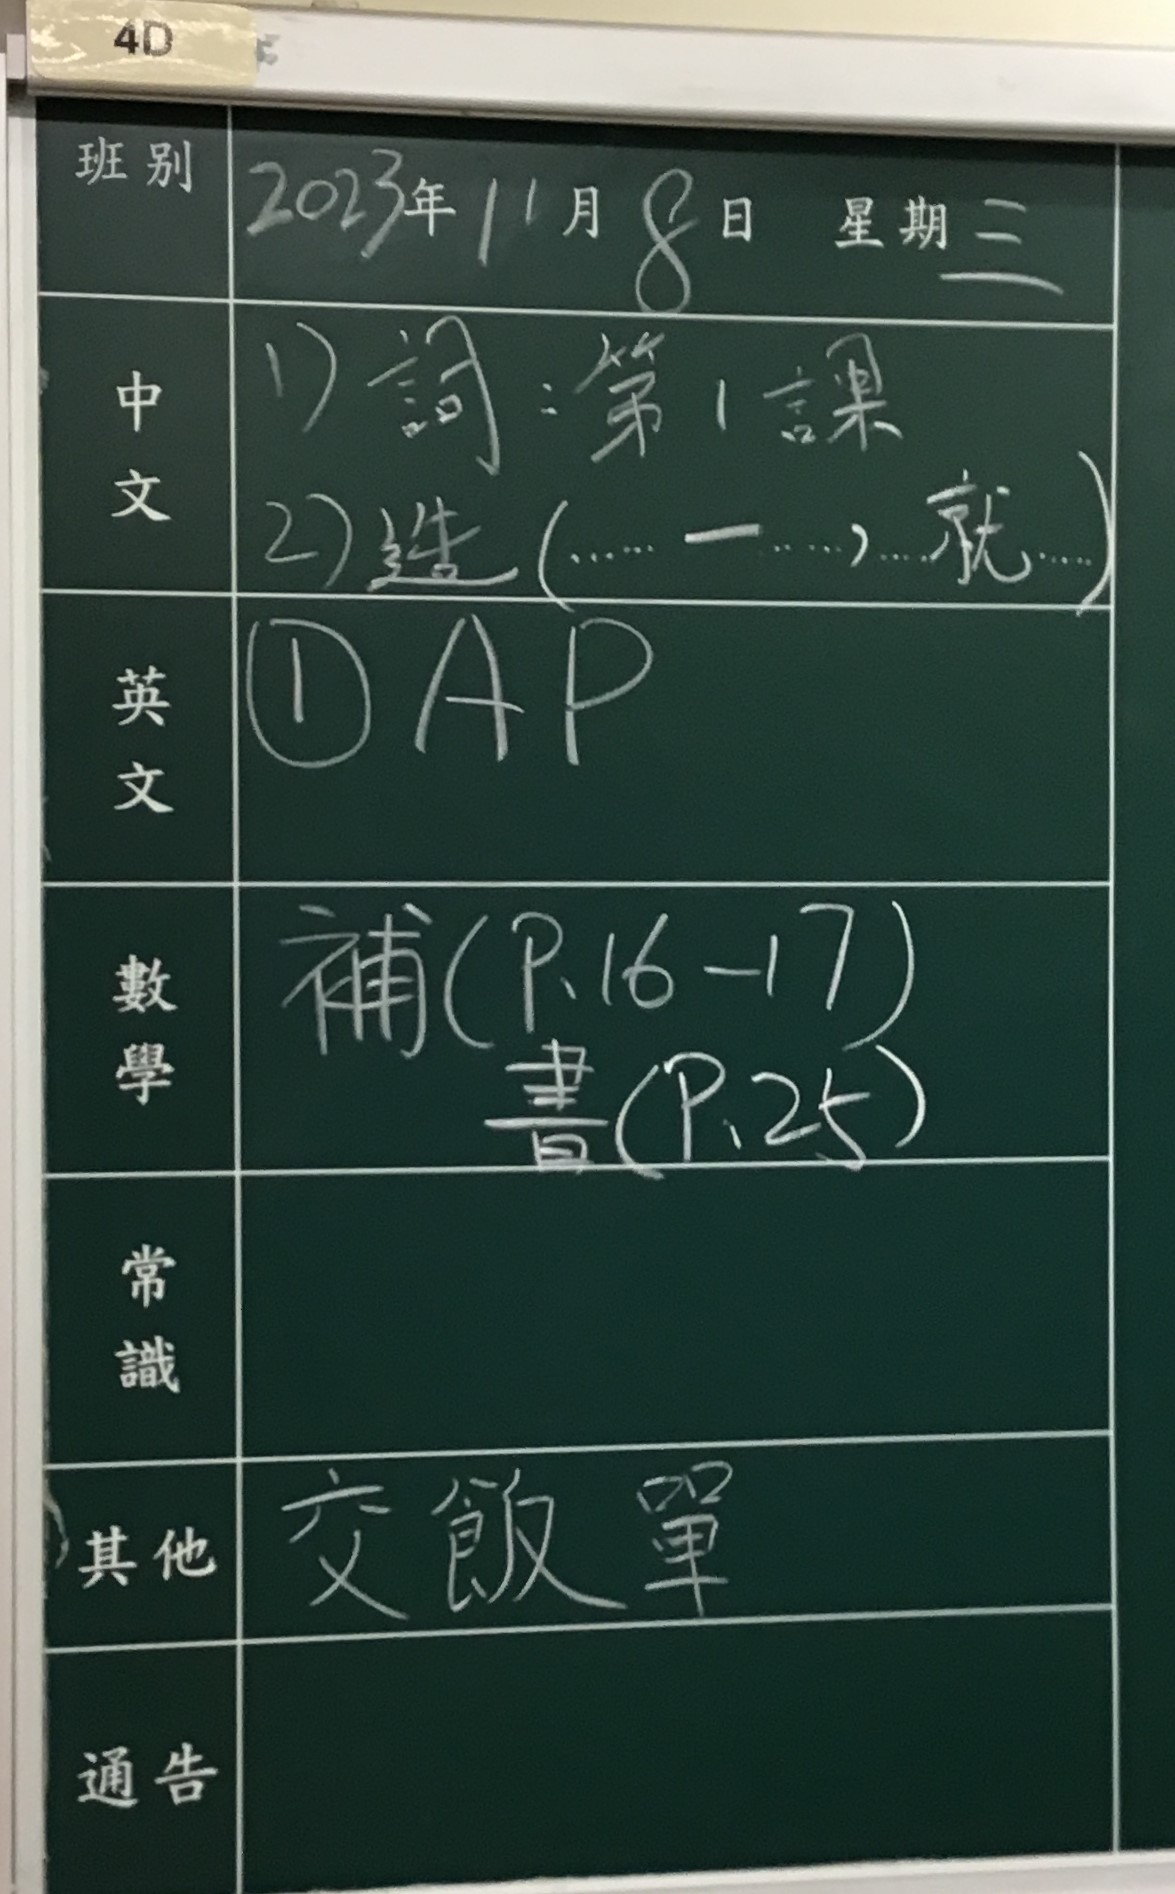 4D
班別 2023年11月8日 星期三
中文
1) 詞:第1課
2) 造(......一......,......就......)
英文
① AP
數學
補(P.16-17)
書(P.25)
常識
其他 交飯單
通告